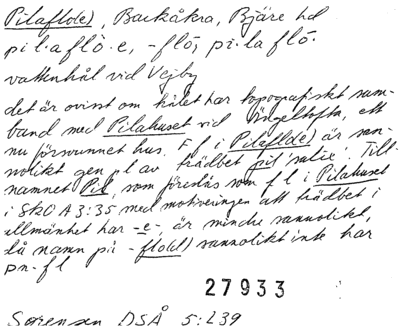 Pilaflo(e), Barkåkra, Bjäre hd
pi·laflò·e, -flò, pi·laflò·
vattenhål vid Vejby
det är ovisst om hålet har topografiskt sam-
band med Pilahuset vid Ängeltofta, ett
nu försvunnet hus. Fl i Pilaflo(e) är san-
nolikt gen pl av trädbet pil 'salix'. Till-
namnet Pil, som föreslås som fl i Pilahuset
i SkO A3:35 med motiveringen att trädbet i
allmänhet har -e-, är mindre sannolikt,
då namn på -flo(d) sannolikt inte har
pn-fl
27933
Sørensen DSÅ 5:239